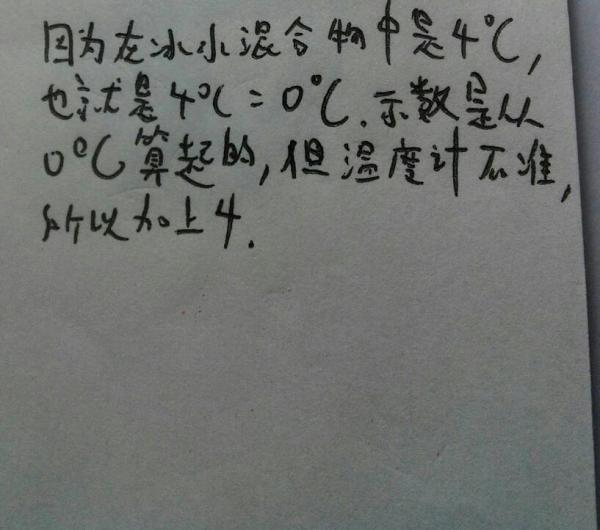 因为在冰水混合物中是4℃,
也就是4℃=0℃.示数是从
0℃算起的,但温度计不准,
所以加上4.